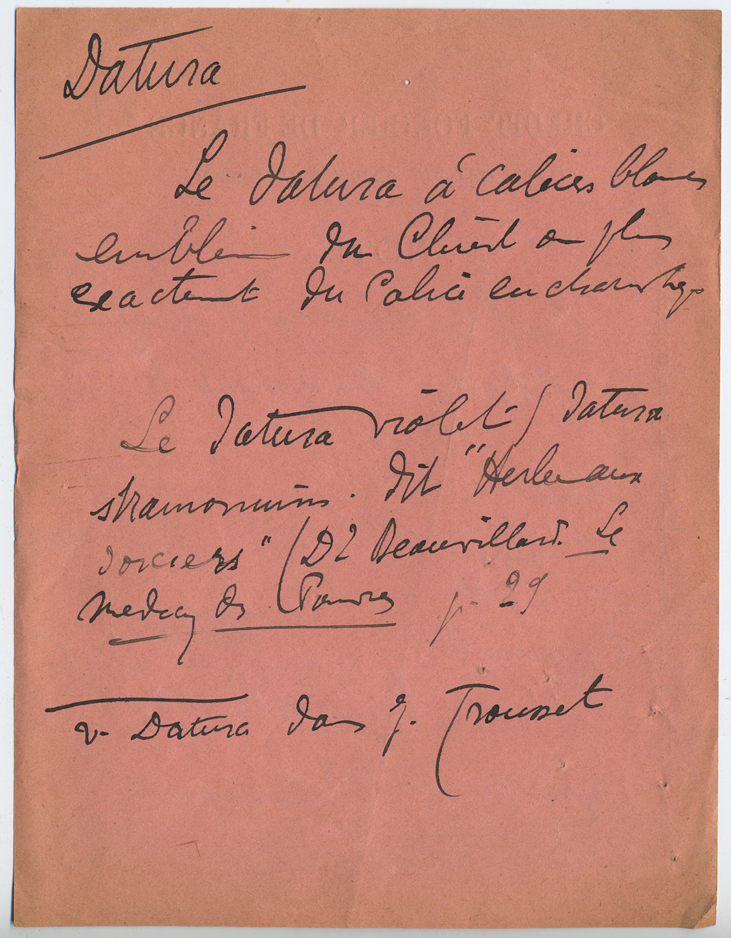 Datura
Le datura à calices blancs
emblème du Christ ou plus
exactement du Calice
Le Datura violet / datura
stramonium. dit "Herbe aux
sorciers" (Dr Beauvillard. Le
Medecin des Pauvres p. 29
v. Datura dans J. Trousset